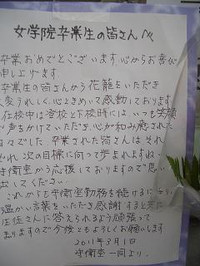 女学院卒業生の皆さんへ
卒業おめでとうございます。心からお喜び
申し上げます
卒業生の皆さんから花籠をいただき
大変うれしく心ときめいて感動しております
在校中は登校と下校時には、いつも笑顔
で声をかけていただき、心が和み癒された
ものでした。卒業された皆さんはそれ
ぞれ次の目標に向って歩まれますね
守衛室から応援しておりますので思い
出してください。
これからも守衛勤務を続けるにあたり
温かい言葉をいただき感謝すると共に
在校生に答えられるよう頑張って
まいりますので今後ともよろしくお願いします
2011年3月1日
守衛室一同より。